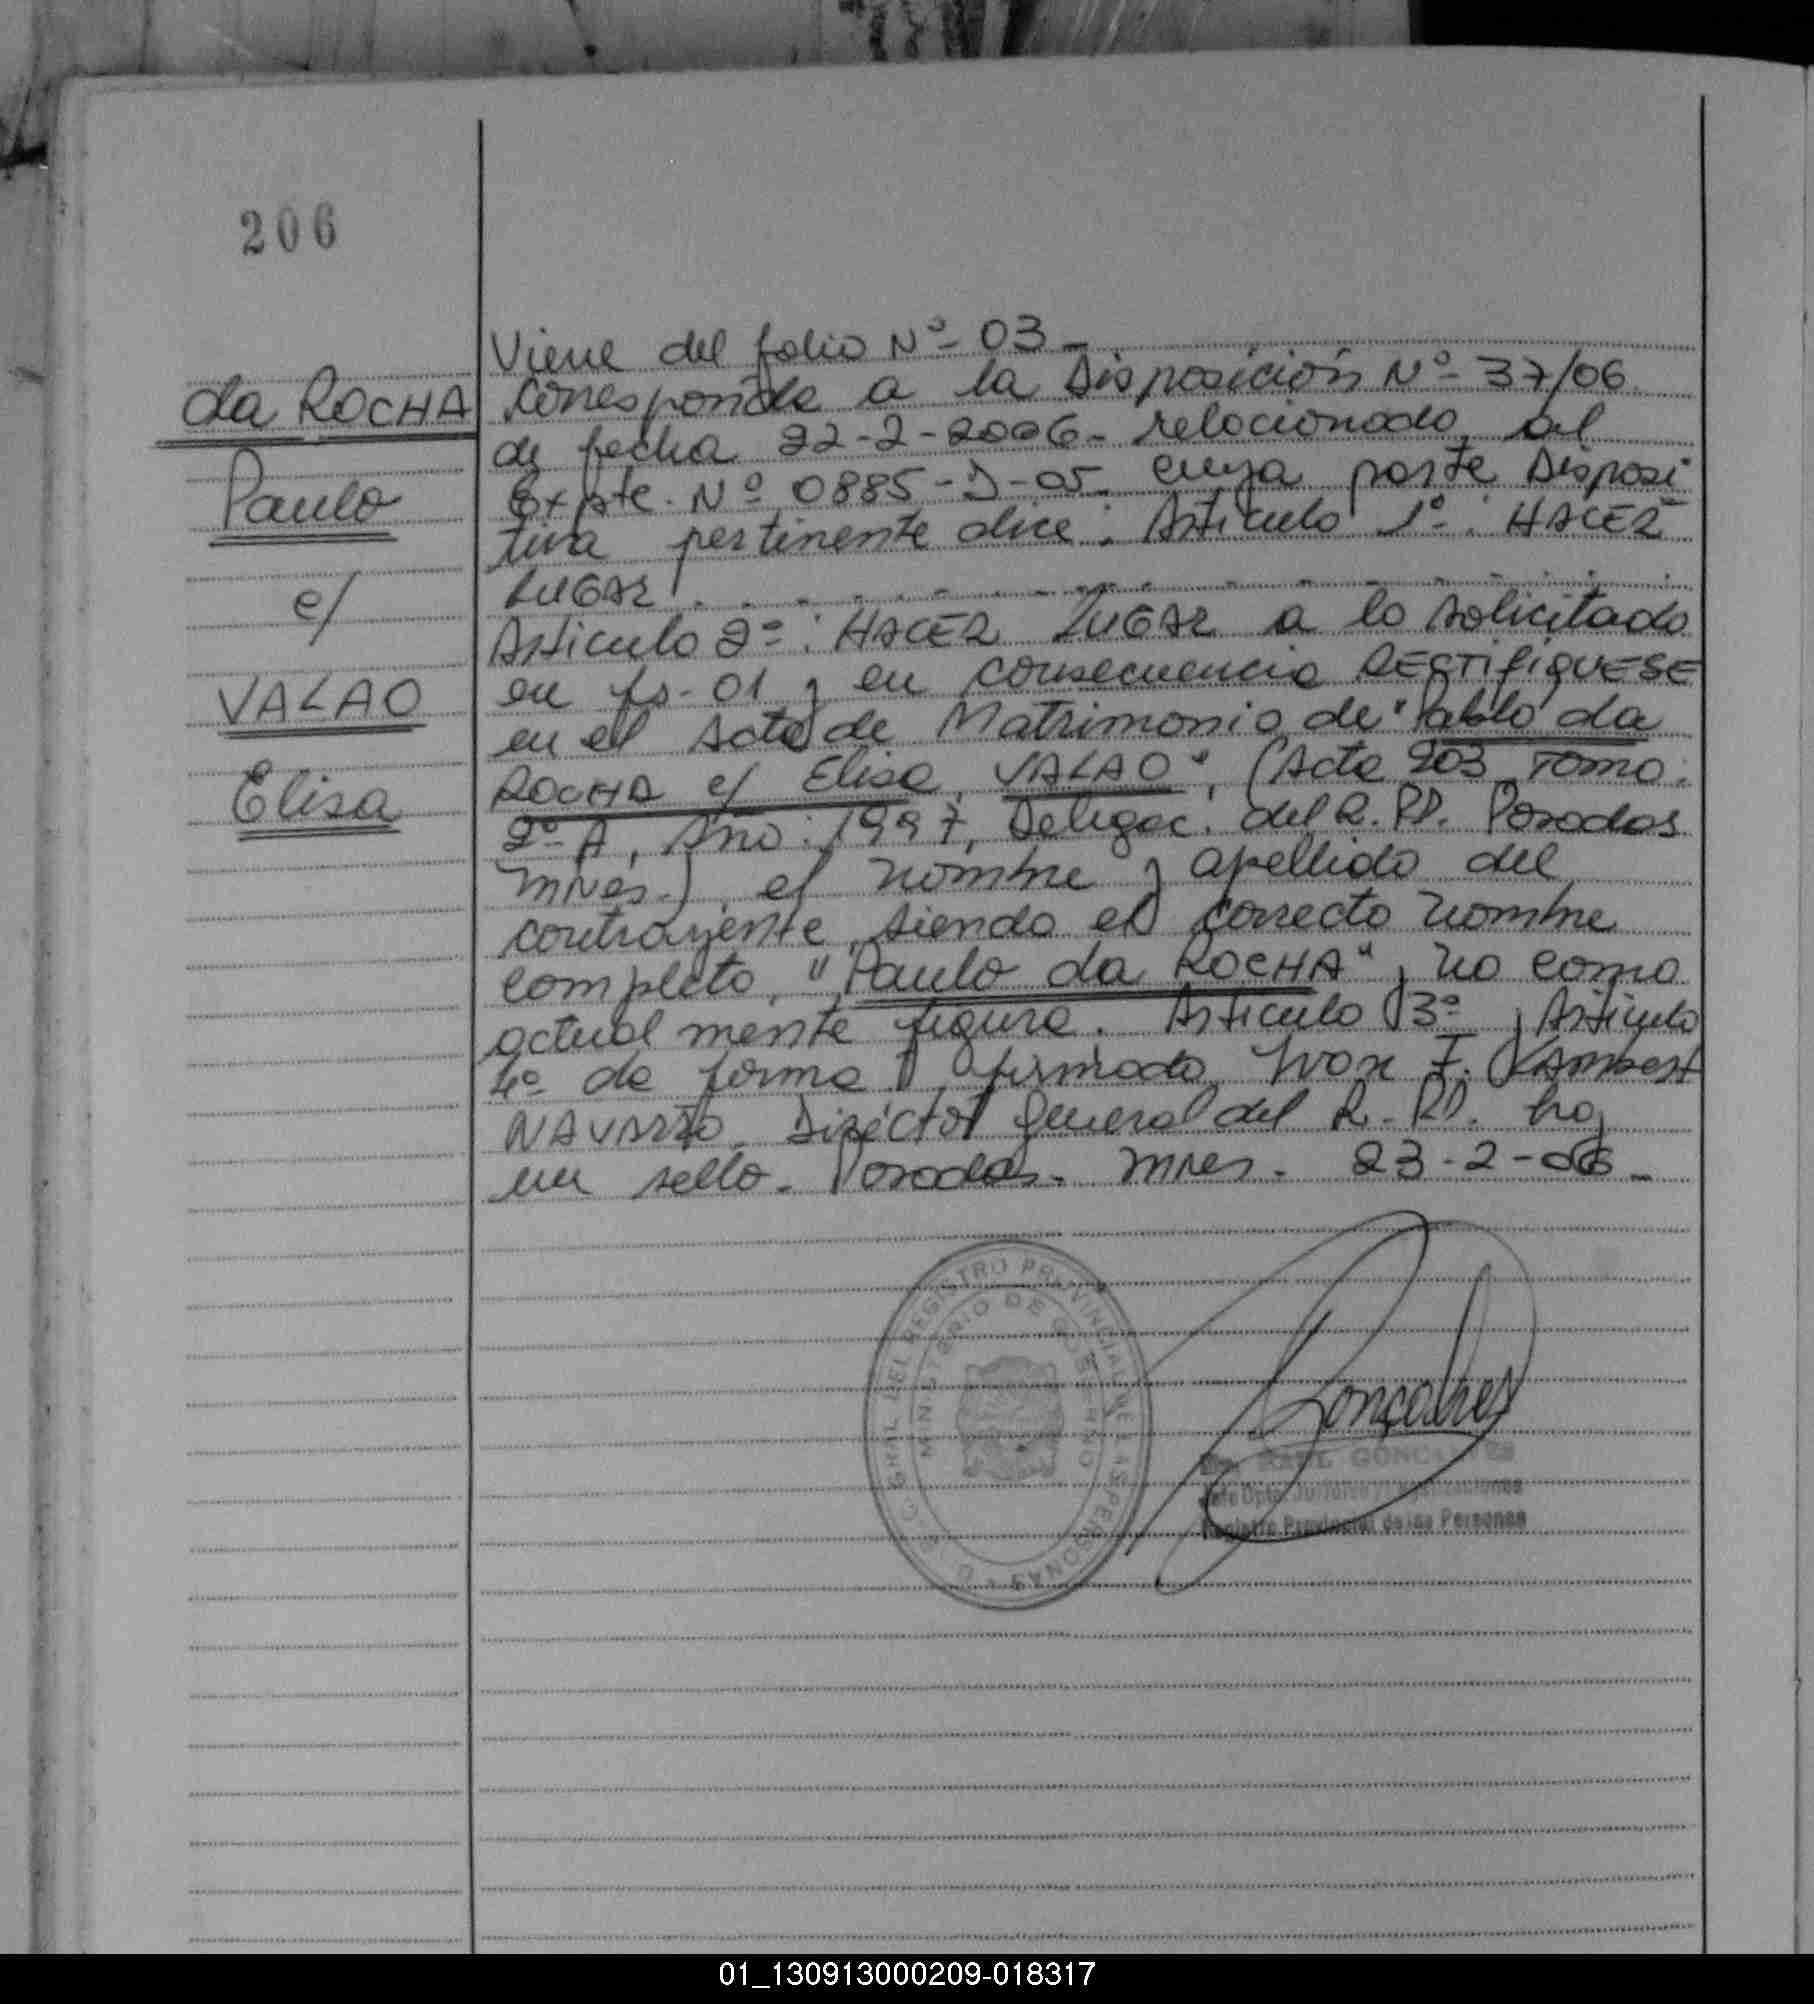 206
da ROCHA
Paulo
c/
VALAO
Elisa
Viene del folio Nº 03-
Corresponde a la Disposición Nº 37/06
de fecha 22-2-2006- relacionado al
Expte. Nº 0885-D-05- cuya parte Disposi
tiva pertinente dice: Artículo 1º: HACER
LUGAR . . . . . . . . . . . . . . . .
Artículo 2º: HACER LUGAR a lo solicitado
en fs-01 y en consecuencia RECTIFIQUESE
en el Acta de Matrimonio de "Pablo da
ROCHA c/ Elisa VALAO", (Acta 203 Tomo:
2º A, Año: 1997, Delegac. del R.PP. Posadas
Mnes.) el nombre y apellido del
contrayente siendo el correcto nombre
completo "Paulo da ROCHA", no como
actualmente figura. Artículo 3º y Artículo
4º de forma firmado Ivon F.
NAVARRO. Director General del R.PP. hay
un sello. Posadas. Mnes. 23-2-06-
REGISTRO PROVINCIAL DE LAS PERSONAS
MINISTERIO DE GOBIERNO
Gonçalves
RAUL GONCALVES
Jefe Dpto.
Registro Provincial de las Personas
01_130913000209-018317